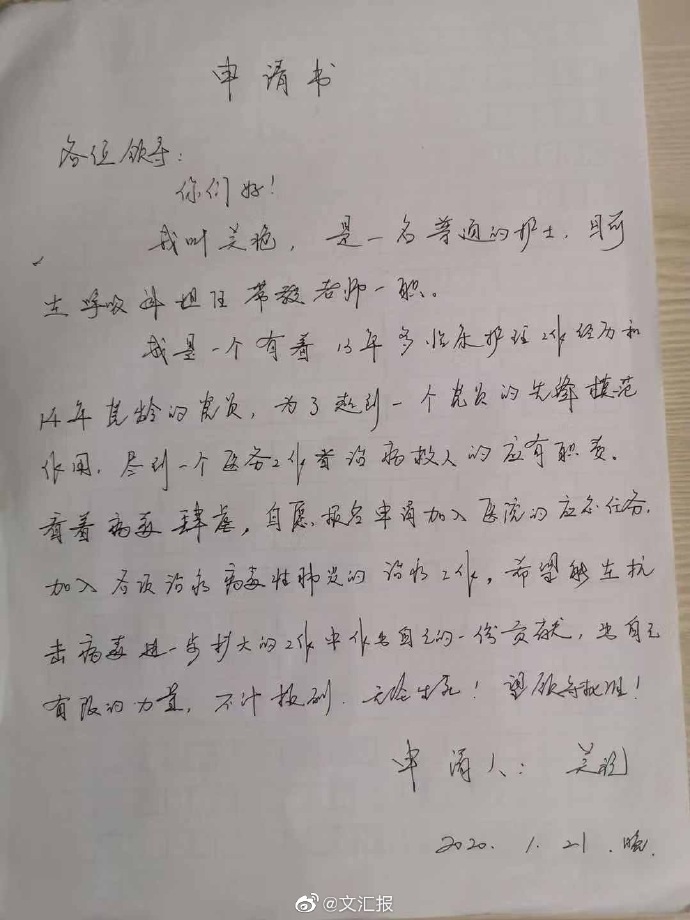 申请书
各位领导:
你们好!
我叫吴艳，是一名普通的护士，目前
在呼吸科担任带教老师一职。
我是一个有着13年多临床护理工作经历和
14年党龄的党员，为了起到一个党员的先锋模范
作用，尽到一个医务工作者治病救人的应有职责。
看着病毒肆虐，自愿报名申请加入医院的应急任务，
加入各项治疗病毒性肺炎的治疗工作，希望能在抗
击病毒进一步扩大的工作中作出自己的一份贡献，出自己
有限的力量，不计报酬，无论生死！望领导批准！
申请人：吴艳
2020.1.21.晚.
@文汇报